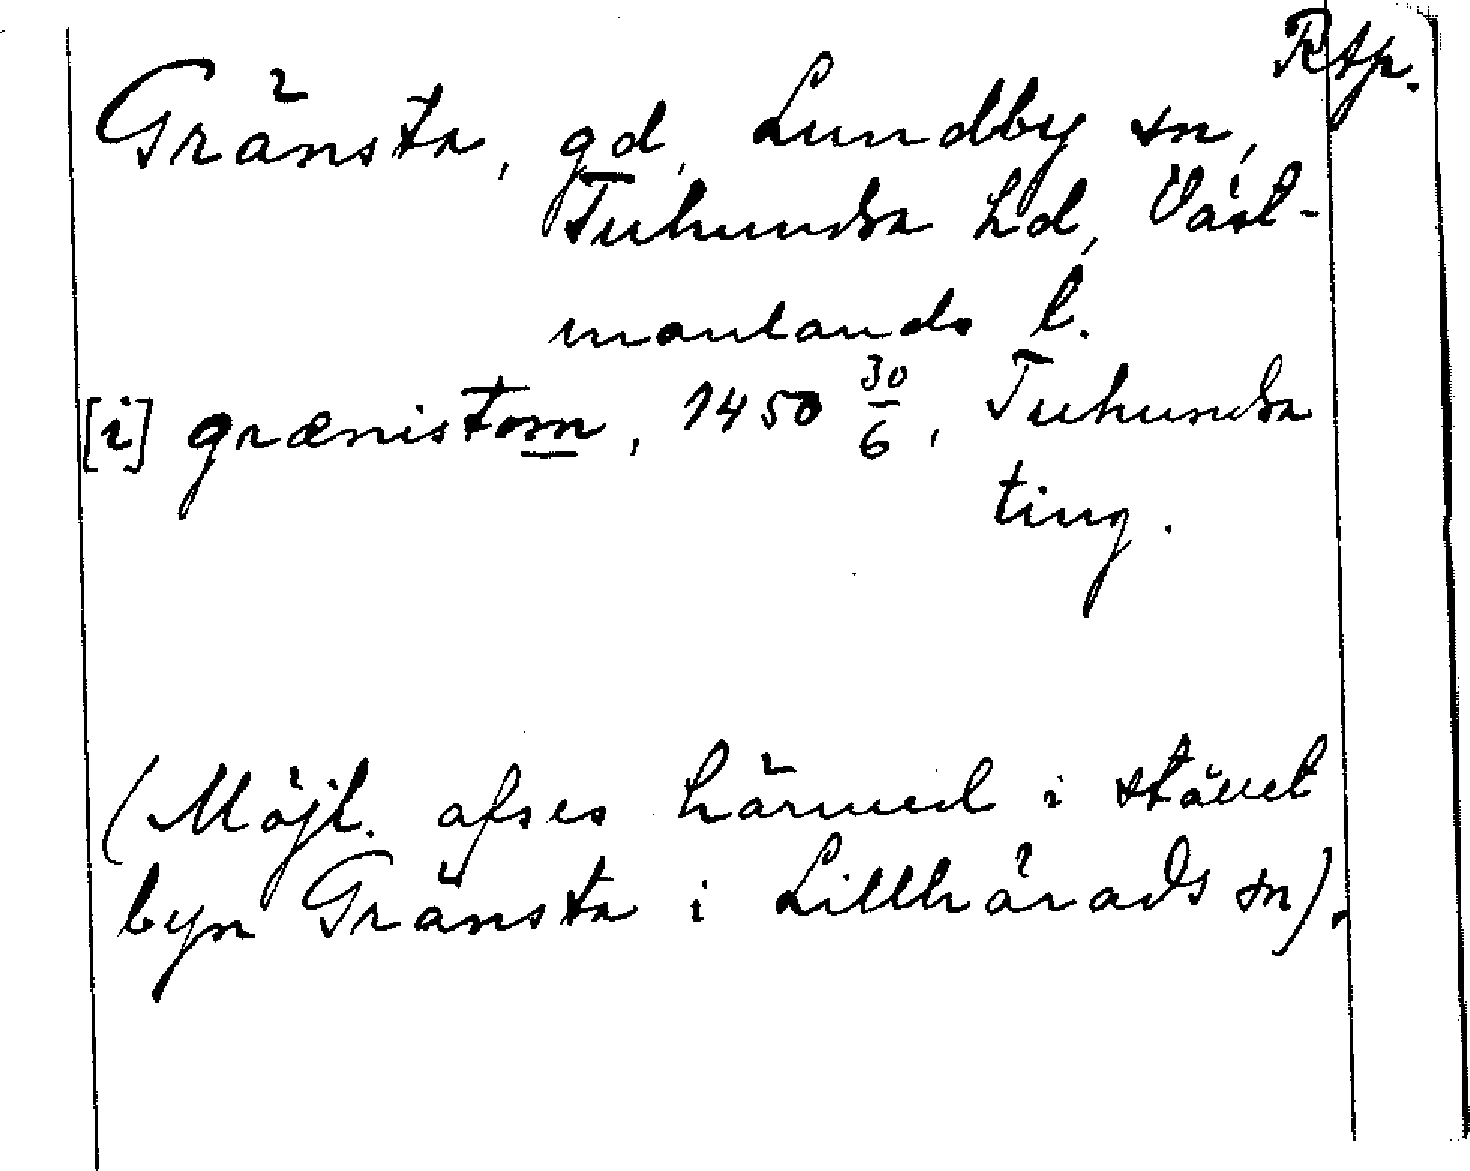 Rtp.
Gränsta, gd, Lundby sn,
Tuhundra hd, Väst-
manlands l.
[i] grænistom, 1450 30/6, Tuhundra
ting.
(Möjl. afses härmed i stället
byn Gränsta i Lillhärads sn).